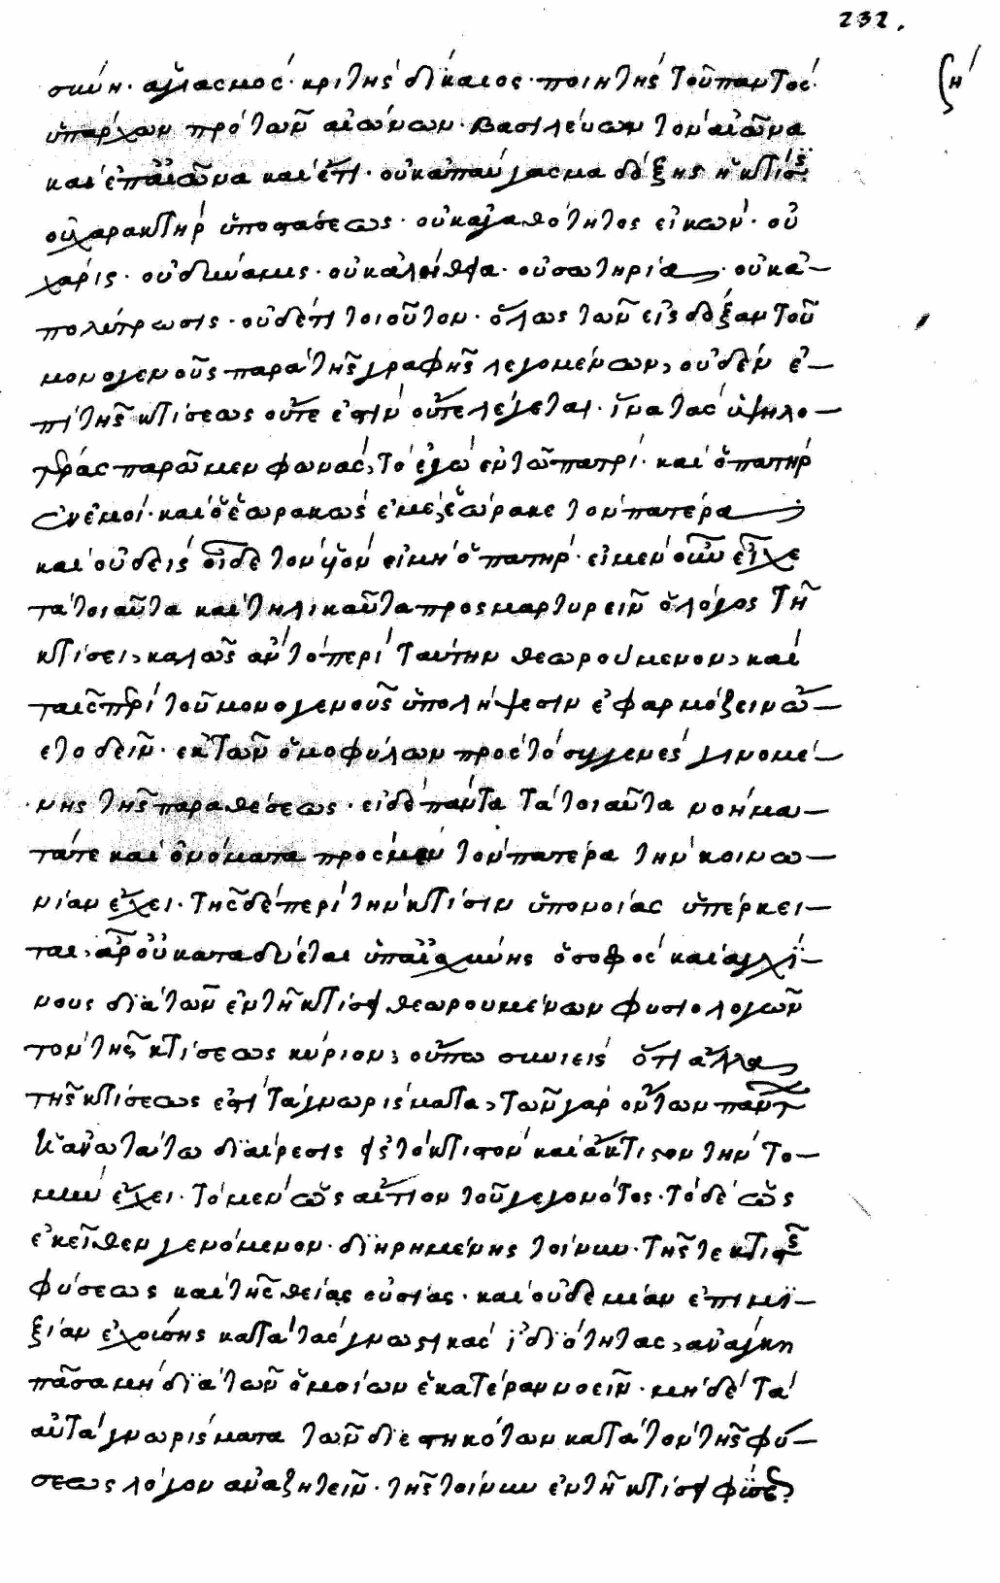 232.
ζη'
σύνη· ἁγιασμός· κριτὴς δίκαιος· ποιητὴς τοῦ παντός·
ὑπάρχων πρὸ τῶν αἰώνων· βασιλεύων τὸν αἰῶνα
καὶ ἐπαἰῶνα καὶ ἔτι· οὐκ ἀπαύγασμα δόξης ἡ κτίσις·
οὐ χαρακτὴρ ὑποστάσεως· οὐκ ἀγαθότητος εἰκών· οὐ
χάρις· οὐ δύναμις· οὐκ ἀλήθεια· οὐ σωτηρία· οὐκ ἀ–
πολύτρωσις· οὐδέτι τοιοῦτον· ὅλως τῶν εἰς δόξαν τοῦ
μονογενοῦς παρὰ τῆς γραφῆς λεγομένων, οὐδὲν ἐ–
πὶ τῆς κτίσεως οὔτε ἐστὶν οὔτε λέγεται· ἵνα τὰς ὑψηλο–
τέρας παρῶμεν φωνάς, τὸ ἐγὼ ἐν τῶ πατρί· καὶ ὁ πατὴρ
ἐν ἐμοί· καὶ ὁ ἑωρακὼς ἐμέ, ἑώρακε τὸν πατέρα
καὶ οὐδεὶς οἶδε τὸν υἱὸν εἰ μὴ ὁ πατήρ· εἰ μὲν οὖν εἶχε
τὰ τοιαῦτα καὶ τηλικαῦτα προσμαρτυρεῖν ὁ λόγος τῆ
κτίσει, καλῶς ἂν τὸ περὶ ταύτην θεωρούμενον, καὶ
ταῖς περὶ τοῦ μονογενοῦς ὑπολήψεσιν ἐφαρμόζειν ὤ–
ετο δεῖν· ἐκ τῶν ὁμοφύλων πρὸς τὸ συγγενὲς γινομέ–
νης τῆς παραθέσεως· εἰ δὲ πάντα τὰ τοιαῦτα νοήμα–
τά τε καὶ ὀνόματα πρὸς μὲν τὸν πατέρα τὴν κοινω–
νίαν ἔχει· τῆς δὲ περὶ τὴν κτίσιν ὑπονοίας ὑπέρκει–
ται, ἆρ' οὐ καταδύεται ὑπαἰσχύνης ὁ σοφὸς καὶ ἀγχί–
νους διὰ τῶν ἐν τῆ κτίσει θεωρουμένων φυσιολογῶν
τὸν τῆς κτίσεως κύριον, οὔπω συνιεὶς ὅτι ἄλλα
τῆς κτίσεως ἐστὶ τὰ γνωρίσματα, τῶν γὰρ ὄντων πάντων
ἡ ἀνωτάτω διαίρεσις εἰς τὸ κτιστὸν καὶ ἄκτιστον τὴν το–
μὴν ἔχει· τὸ μὲν ὡς αἴτιον τοῦ γεγονότος· τὸ δὲ ὡς
ἐκεῖθεν γενόμενον· διηρημένης τοίνυν· τῆς τε κτιστῆς
φύσεως καὶ τῆς θείας οὐσίας· καὶ οὐδεμίαν ἐπιμι–
ξίαν ἐχούσης κατὰ τὰς γνωστικὰς ἰδιότητας, ἀνάγκη
πᾶσα μὴ διὰ τῶν ὁμοίων ἑκατέραν νοεῖν· μηδὲ τὰ
αὐτὰ γνωρίσματα τῶν διεστηκότων κατὰ τὸν τῆς φύ–
σεως λόγον ἀναζητεῖν· τῆς τοίνυν ἐν τῆ κτίσει φύσεως